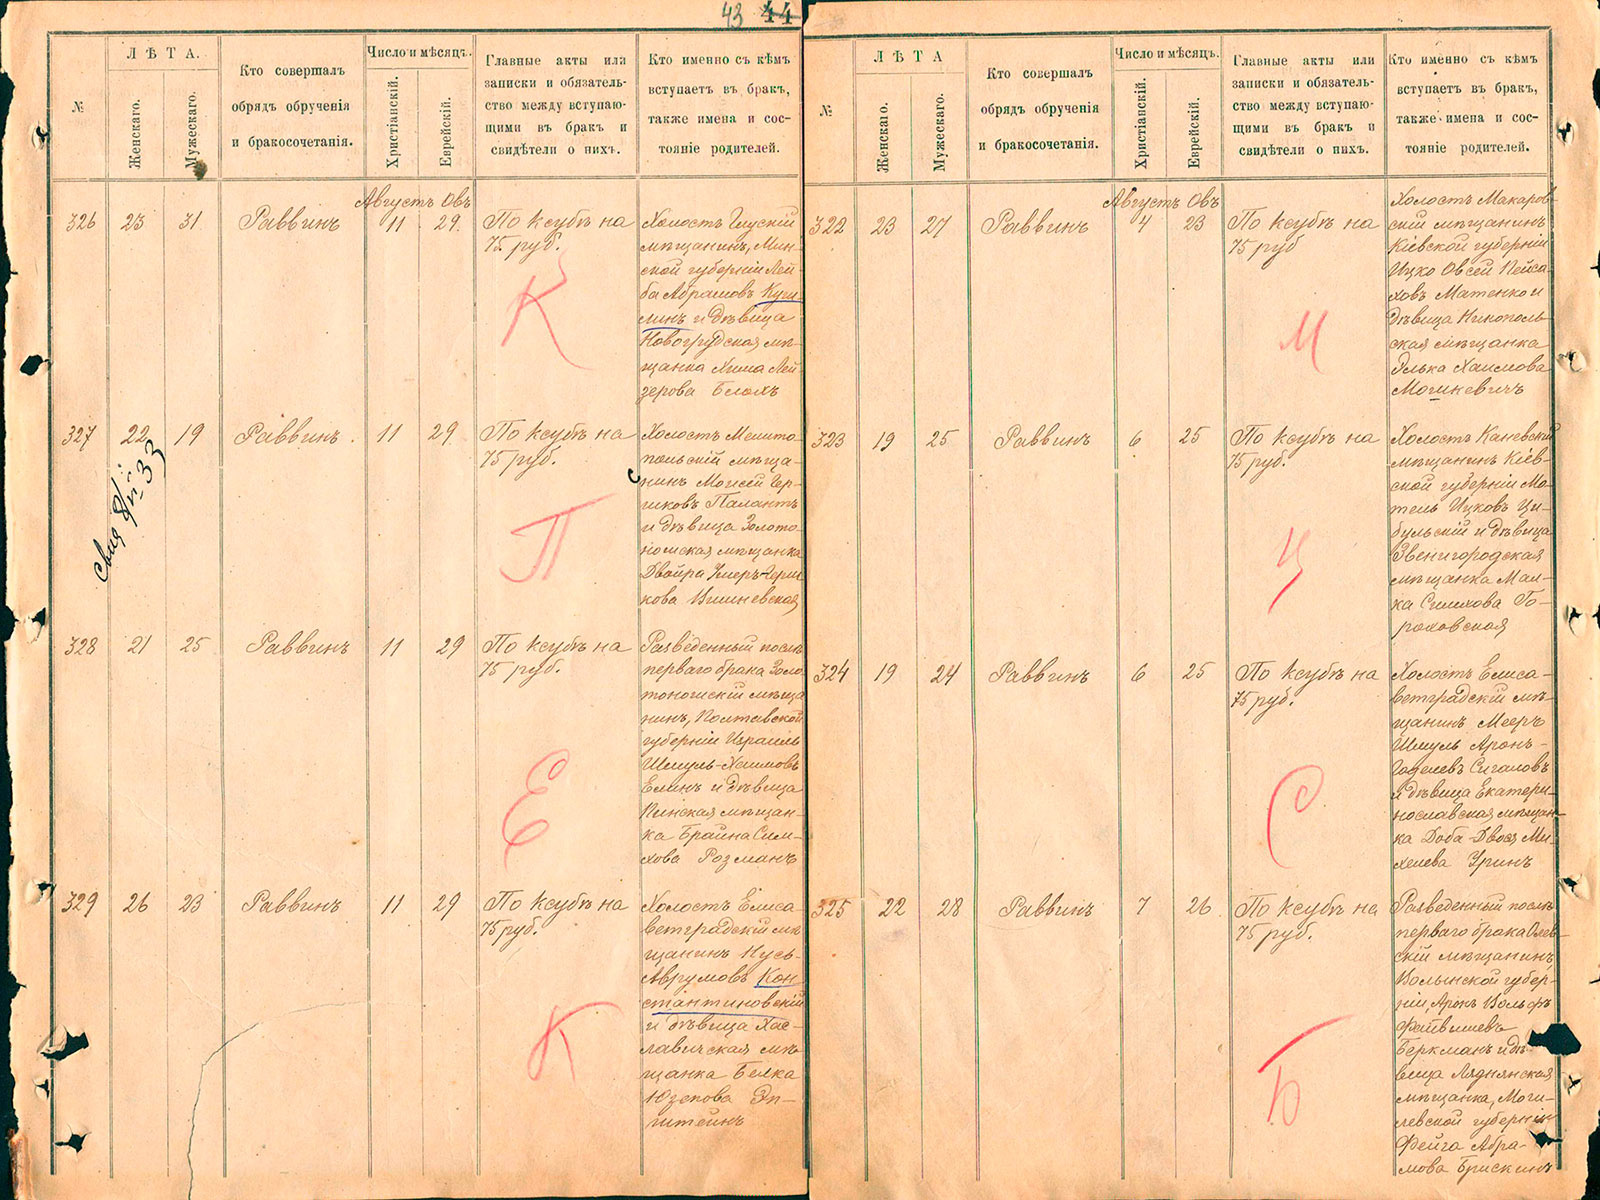 43 44
№
ЛѢТА.
Женскаго.
Мужескаго.
Кто совершалъ
обрядъ обрученія
и бракосочетанія.
Число и мѣсяцъ.
Христіанскій.
Еврейскій.
Главные акты или
записки и обязатель-
ство между вступаю-
щими въ бракъ и
свидѣтели о нихъ.
Кто именно съ кѣмъ
вступаетъ въ бракъ,
также имена и сос-
тояніе родителей.
Августъ Овъ
326 23 31 Раввинъ 11 29.
По ксубѣ на
75 руб.
К
Холостъ Глускій
мѣщанинъ, Мин-
ской губерніи Лей-
ба Абрамовъ Куги-
линъ и дѣвица
Новогрудская мѣ-
щанка Хима Лей-
зерова Блохъ
327 22 19 Раввинъ 11 29.
По ксубѣ на
75 руб.
П
Холостъ Мелито-
польскій мѣща-
нинъ Моисей Гер-
шковъ Палантъ
и дѣвица Золото-
ношская мѣщанка
Двойра Умеръ-Герш-
кова Вишневская
328 21 25 Раввинъ 11 29
По ксубѣ на
75 руб.
Е
Разведенный послѣ
перваго брака Золо-
тоношскій мѣща
нинъ, Полтавской
губерніи Израиль
Шмуль-Хаимовъ
Елинъ и дѣвица
Пинская мѣщан-
ка Брайна Сим-
хова Розманъ
329 26 23 Раввинъ 11 29
По ксубѣ на
75 руб.
К
Холостъ Елиса
ветградскій мѣ
щанинъ Нусь-
Аврумовъ Кон
стантиновскій
и дѣвица Хас-
лавичская мѣ
щанка Белка
Юзепова Эп-
штейнъ
№
ЛѢТА
Женскаго.
Мужескаго.
Кто совершалъ
обрядъ обрученія
и бракосочетанія.
Число и мѣсяцъ.
Христіанскій.
Еврейскій.
Главные акты или
записки и обязатель-
ство между вступаю-
щими въ бракъ и
свидѣтели о нихъ.
Кто именно съ кѣмъ
вступаетъ въ бракъ,
также имена и сос-
тояніе родителей.
Августъ Овъ
322 23 27 Раввинъ 4 23
По ксубѣ на
75 руб
М
Холостъ Макаров-
скій мѣщанинъ
Кіевской губерніи
Ицко Овсей Пейса-
ховъ Матенко и
дѣвица Никополь-
ская мѣщанка
Элька Хаимова
Могикевичъ
323 19 25 Раввинъ 6 25
По ксубѣ на
75 руб.
Ц
Холостъ Каневскій
мѣщанинъ Кіев-
ской губерніи Мо-
тель Ицковъ Ци-
бульскій и дѣвица
Звенигородская
мѣщанка Мал-
ка Симхова Го-
роховская
324 19 24 Раввинъ 6 25
По ксубѣ на
75 руб.
С
Холостъ Елиса-
ветградскій мѣ-
щанинъ Мееръ
Шмуль Аронъ-
Годелевъ Сигаловъ
и дѣвица Екатери-
нославская мѣщан-
ка Доба-Двося Ми-
хелева Уринъ
325 22 28 Раввинъ 7 26
По ксубѣ на
75 руб.
Б
Разведенный послѣ
перваго брака Олев-
скій мѣщанинъ
Волынской губер-
ніи, Аронъ Вольфъ
Фейвишевъ
Беркманъ и дѣ-
вица Ляднянская
мѣщанка, Моги-
левской губерніи
Фейга Абра-
мова Брискинъ